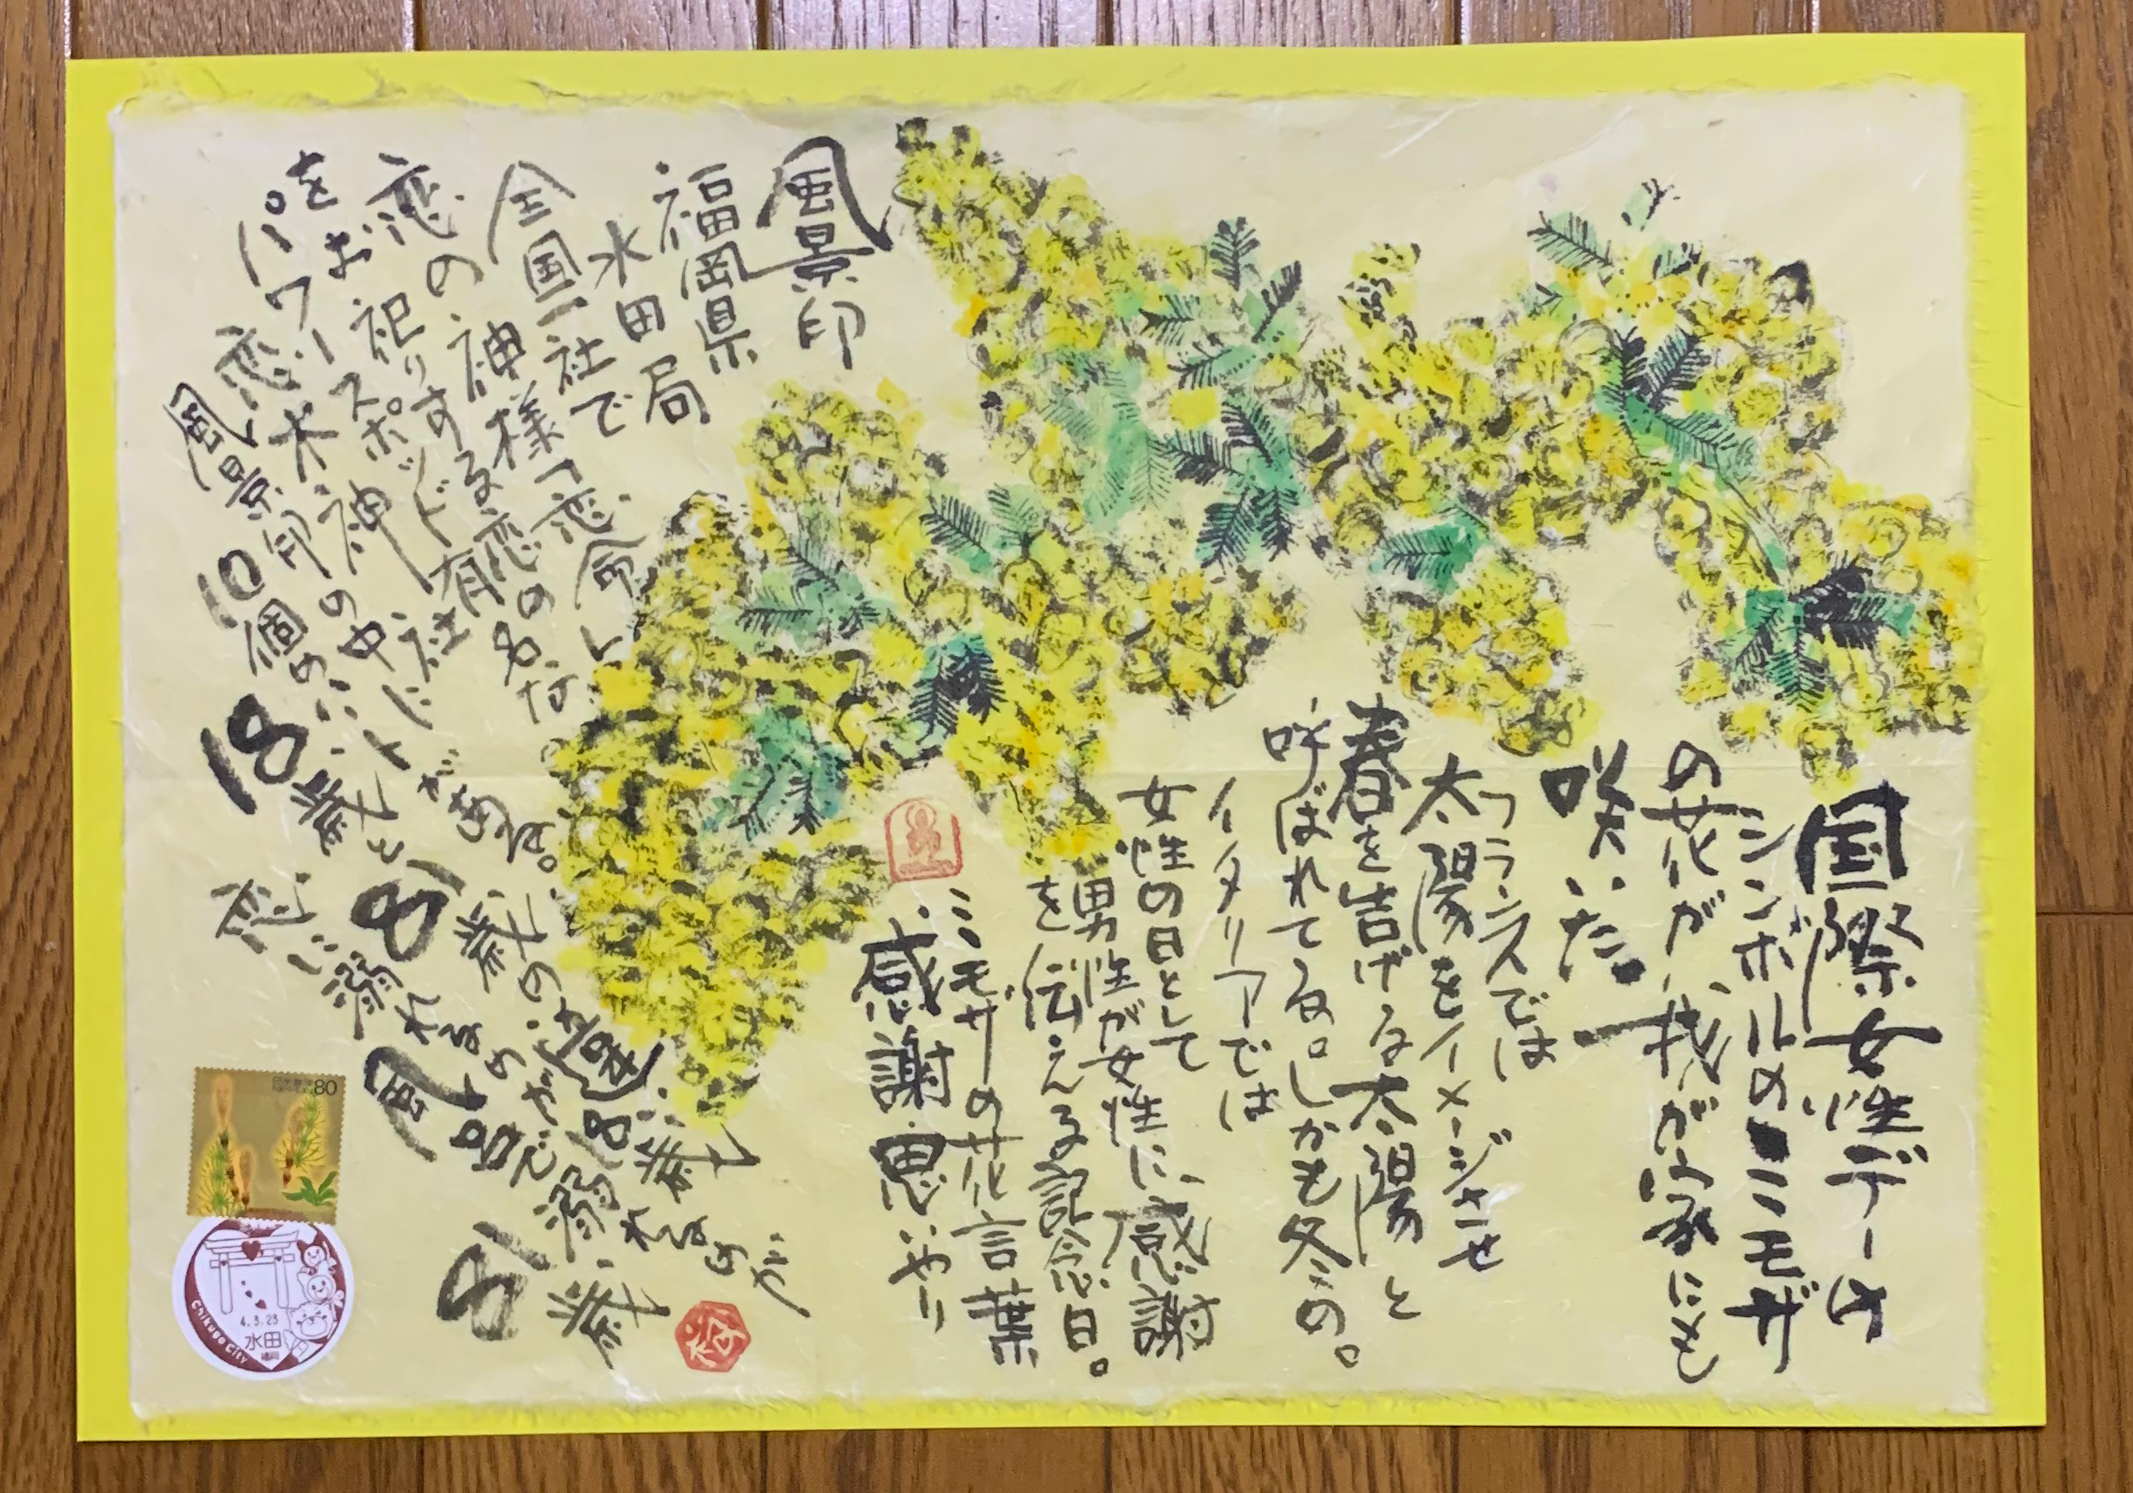 国際女性デーは
シンボルのミモザ
の花が我が家にも
咲いた
フランスでは
太陽をイメージさせ
春を告げる太陽と
呼ばれてる。しかも冬の。
イタリアでは
女性の日として
男性が女性に感謝
を伝える記念日。
ミモザの花言葉
感謝 思いやり
風景印
福岡県
水田局
全国一社で
恋の神様「恋命」
をお祀りする有名な
恋の
パワースポット
恋木神社
がある。
風景印の中
10個のハート
18歳と81歳の違い
恋に溺れるのが18歳
風呂で溺れるのが
81歳
80
4.3.23
水田
福岡
Chikugo City